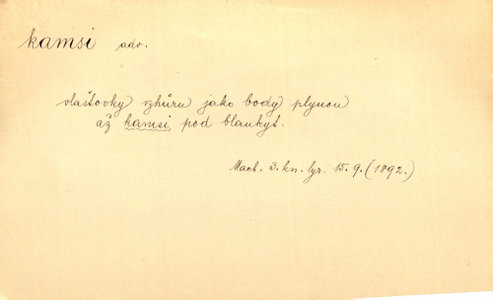 kamsi adv.
vlaštovky vzhůru jako body plynou
až kamsi pod blankyt.
Mach. 3. kn. lyr. 15. 9. (1892.)